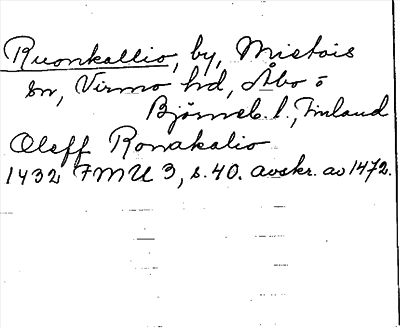 Ruonkallio, by, Mietois
sn, Virmo hd, Åbo o
Björneb. l., Finland
Oleff Ronakalio
1432 FMU 3, s. 40. avskr. av 1472.